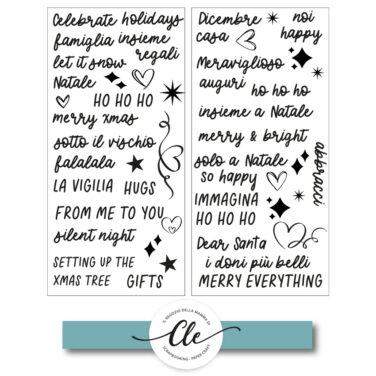 Celebrate holidays
famiglia insieme
let it snow regali
Natale
HO HO HO
merry xmas
sotto il vischio
falalala
LA VIGILIA HUGS
FROM ME TO YOU
silent night
SETTING UP THE
XMAS TREE GIFTS
Dicembre noi
casa happy
Meraviglioso
auguri ho ho ho
insieme a Natale
merry & bright
solo a Natale
so happy
abbracci
IMMAGINA
HO HO HO
Dear Santa
i doni più belli
MERRY EVERYTHING
IL NEGOZIO DELLA MAMMA DI
Cle
SCRAPBOOKING - PAPER CRAFT